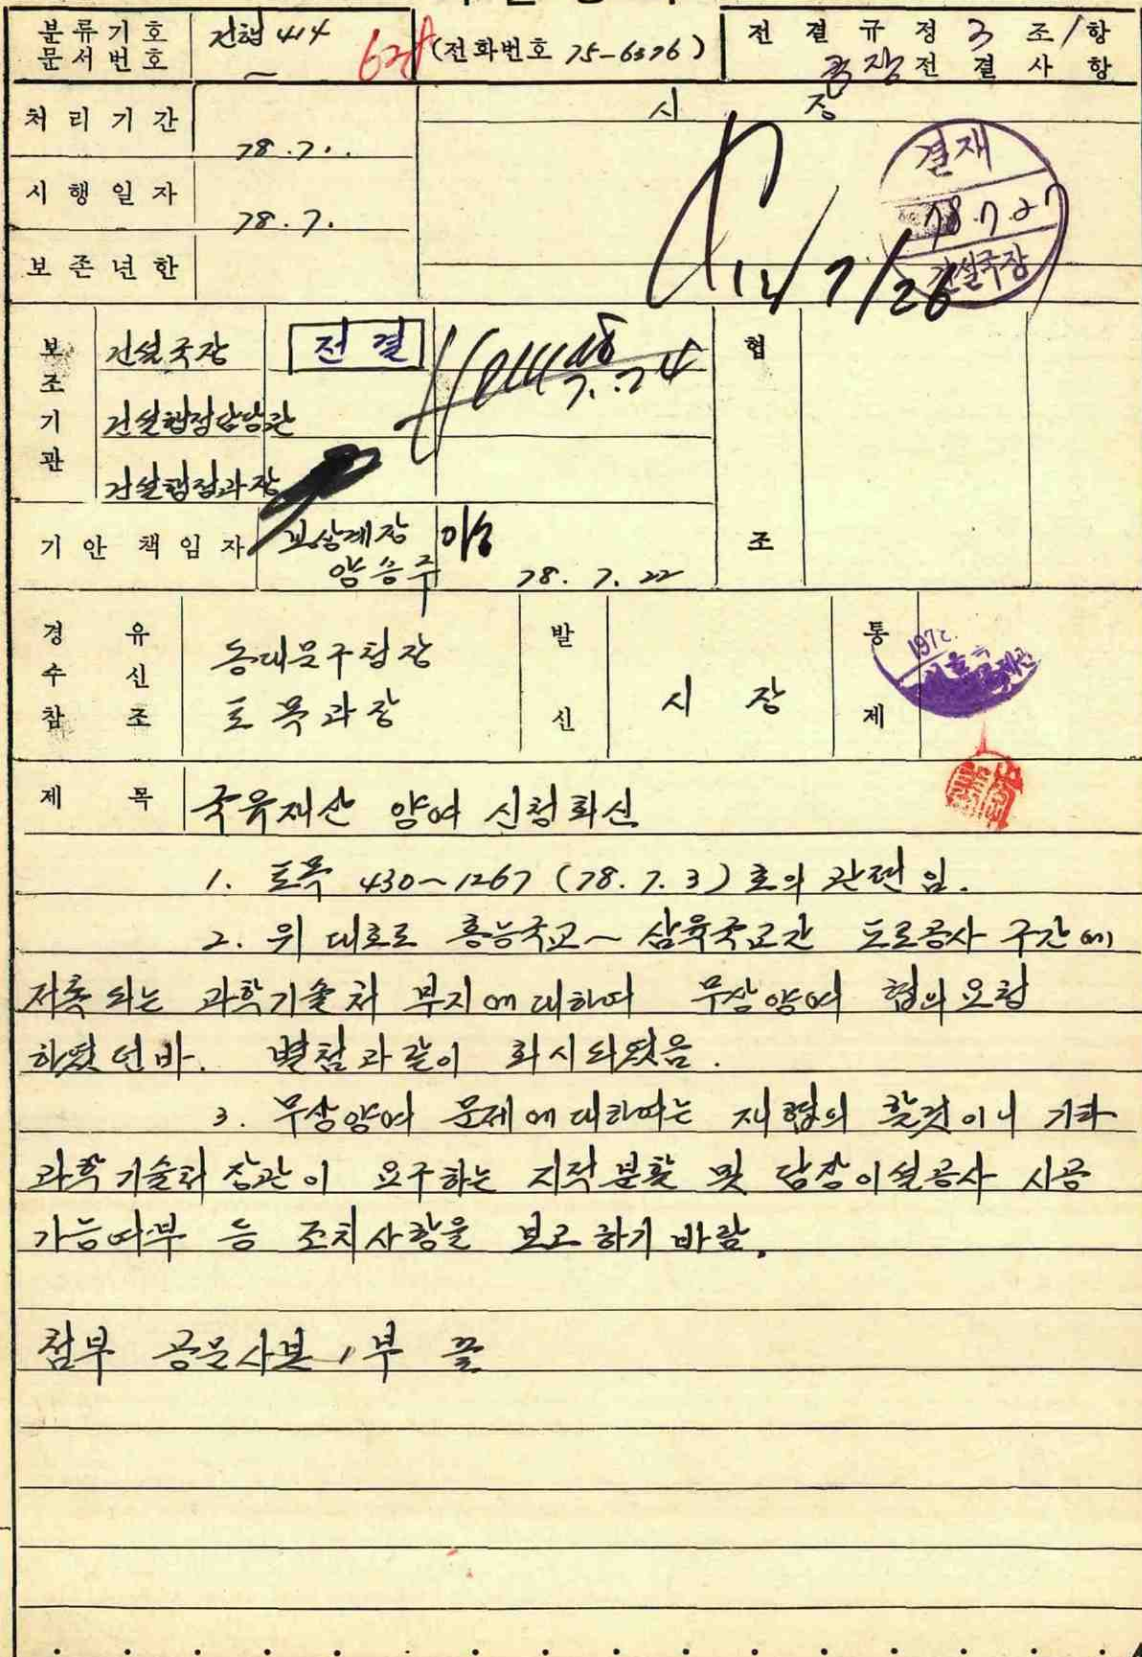 분류기호
문서번호
건행 414
(전화번호 75-6376)
전결규정 3 조 1 항
국장 전결사항
처리기간
78. 7. .
시 장
시행일자
78. 7.
보존년한
결재
78.7.27
건설국장
7/26
보조기관
건설국장
전결
7. 24
협조
건설행정담당관
건설행정과장
기안책임자
보상계장
양승주
78. 7. 22
경유
수신
참조
동대문구청장
토목과장
발신
시 장
통제
제목
국유재산 양여 신청회신
1. 토목 430~1267 (78. 7. 3) 호의 관련임.
2. 위 대호로 홍능국교~삼육국교간 도로공사 구간에
저촉되는 과학기술처 부지에 대하여 무상양여 협의요청
하였던바. 별첨과 같이 회시되였음.
3. 무상양여 문제에 대하여는 재협의 할것이니 기타
과학기술처 장관이 요구하는 지적분할 및 담장이설공사 시공
가능여부 등 조치사항을 보고하기 바람.
첨부 공문사본 1부 끝